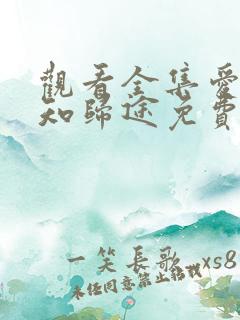 觀看全集愛
知歸途免費
一笑長歌 xs8
未經同意禁止轉載